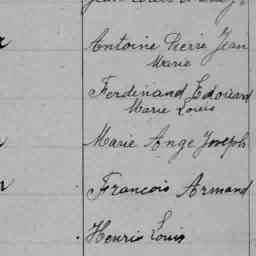 Jean Louis
Antoine Pierre Jean
Marie
Ferdinand Edouard
Marie Louis
Marie Ange Joseph
Francois Armand
Henri Louis